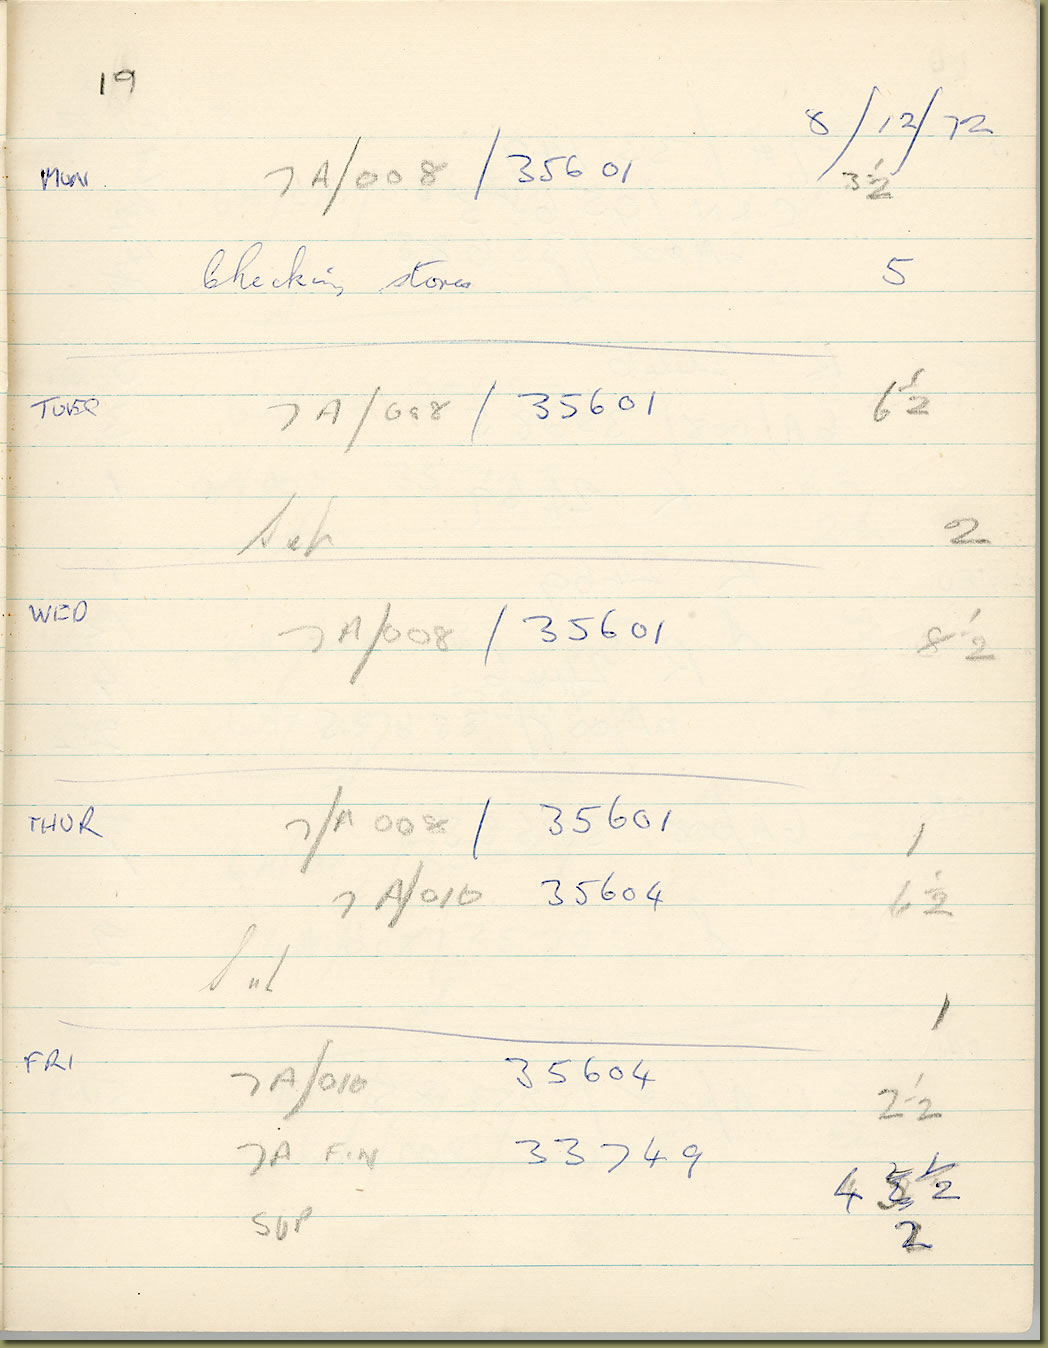 19
8/12/72
MON 7A/008 / 35601 3 1/2
Checking stores 5
TUES 7A/008 / 35601 6 1/2
Sup 2
WED 7A/008 / 35601 8 1/2
THUR 7/A 008 / 35601 1
7A/010 35604 6 1/2
1
FRI 7A/010 35604 2 1/2
7A FIN 33749 4 1/2
SUP 2